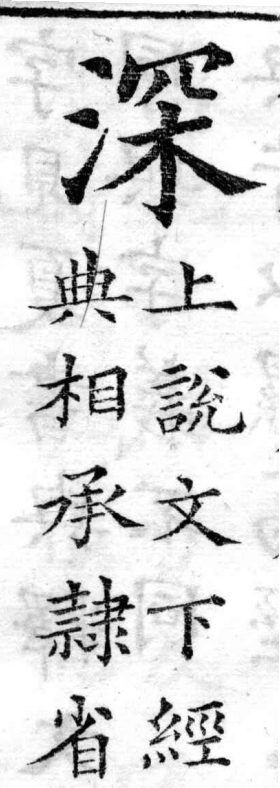 深
上說文下經
典相承隷省